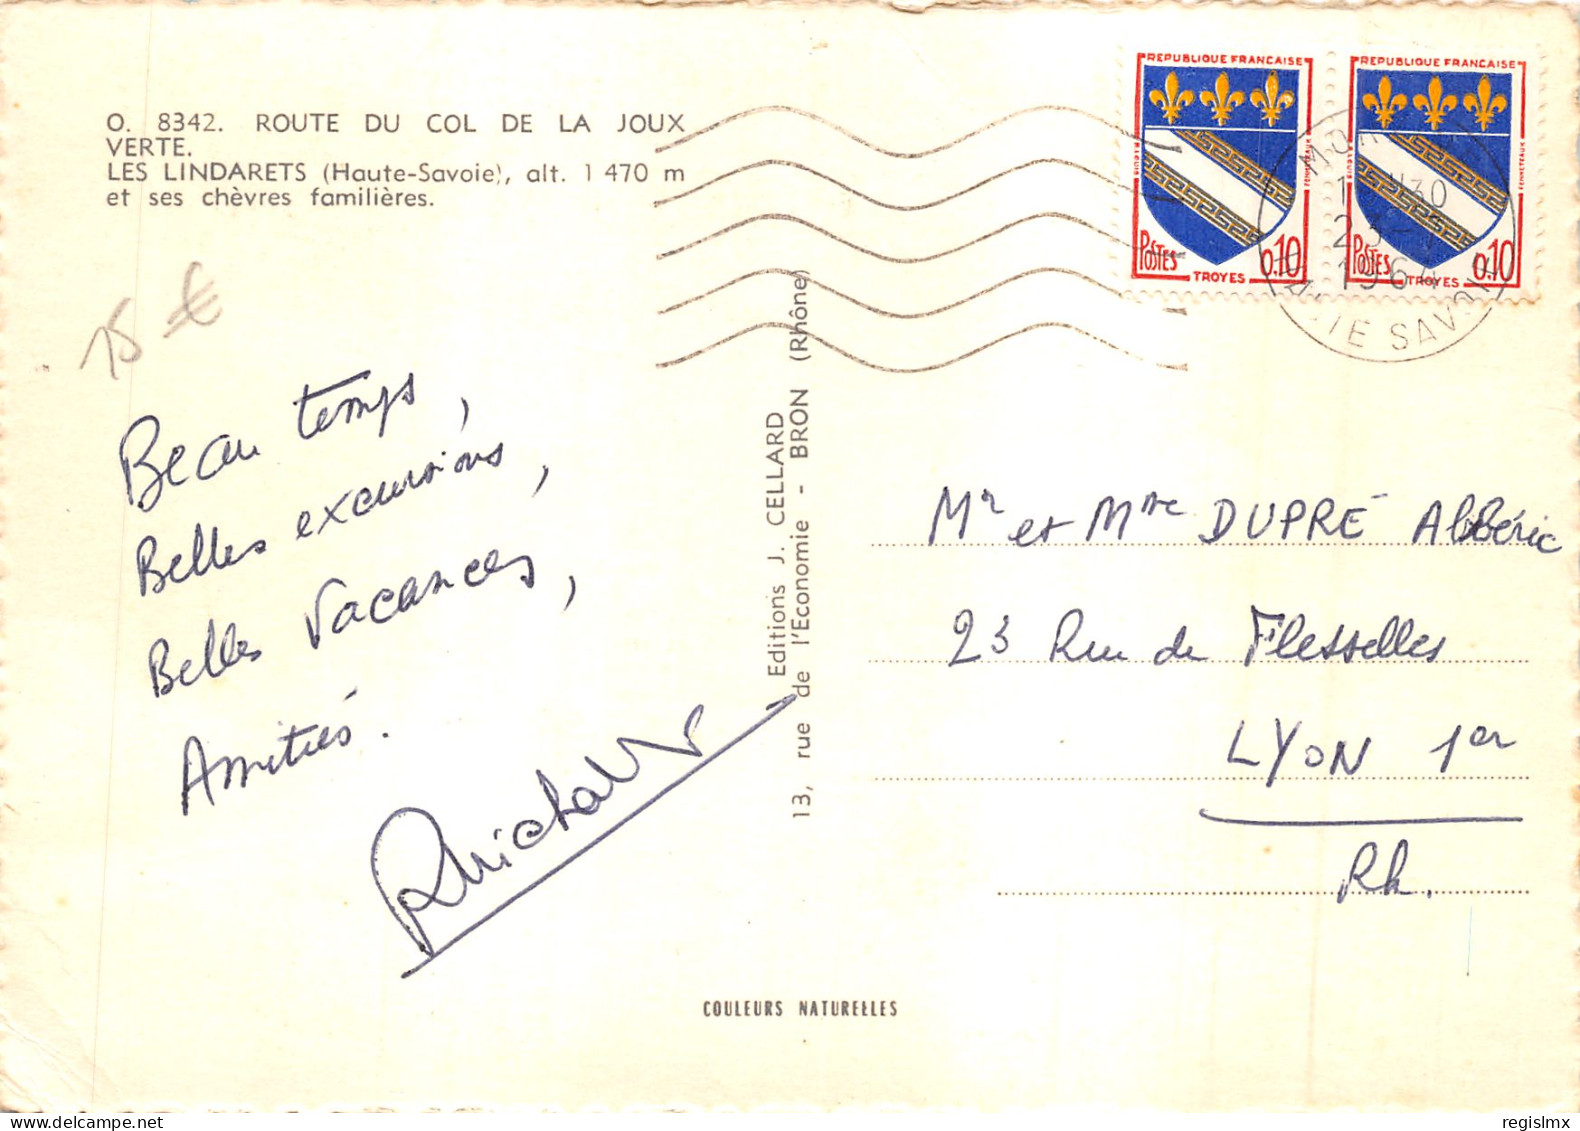 O. 8342. ROUTE DU COL DE LA JOUX
VERTE.
LES LINDARETS (Haute-Savoie), alt. 1 470 m
et ses chèvres familières.
15 €
Beau temps,
Belles excursions,
Belles Vacances,
Amitiés.
Editions J. CELLARD
13, rue de l'Economie - BRON (Rhône)
COULEURS NATURELLES
REPUBLIQUE FRANCAISE
POSTES
0,10
TROYES
REPUBLIQUE FRANCAISE
POSTES
0,10
TROYES
1964
SAVOIE
Mr et Mme DUPRÉ Albéric
23 Rue de Flesselles
LYON 1er
Rh.
regislmx